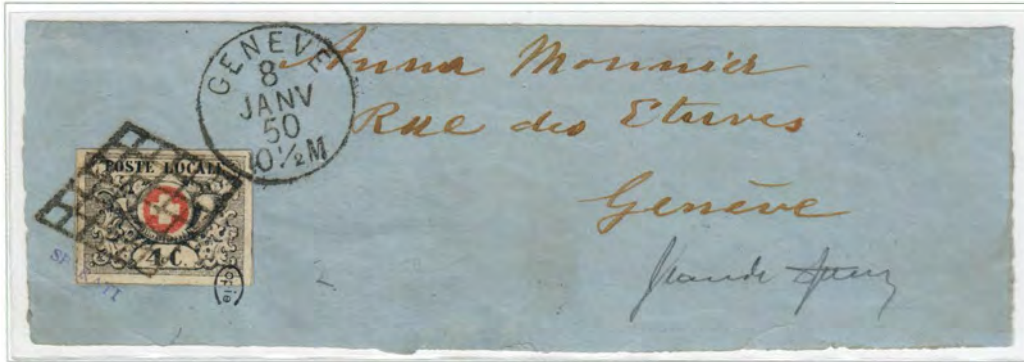 GENEVE
8
JANV
50
10½M
Anna Monnier
Rue des Etuves
Genève
POSTE LOCALE
4 C.
SPERATI
cpie